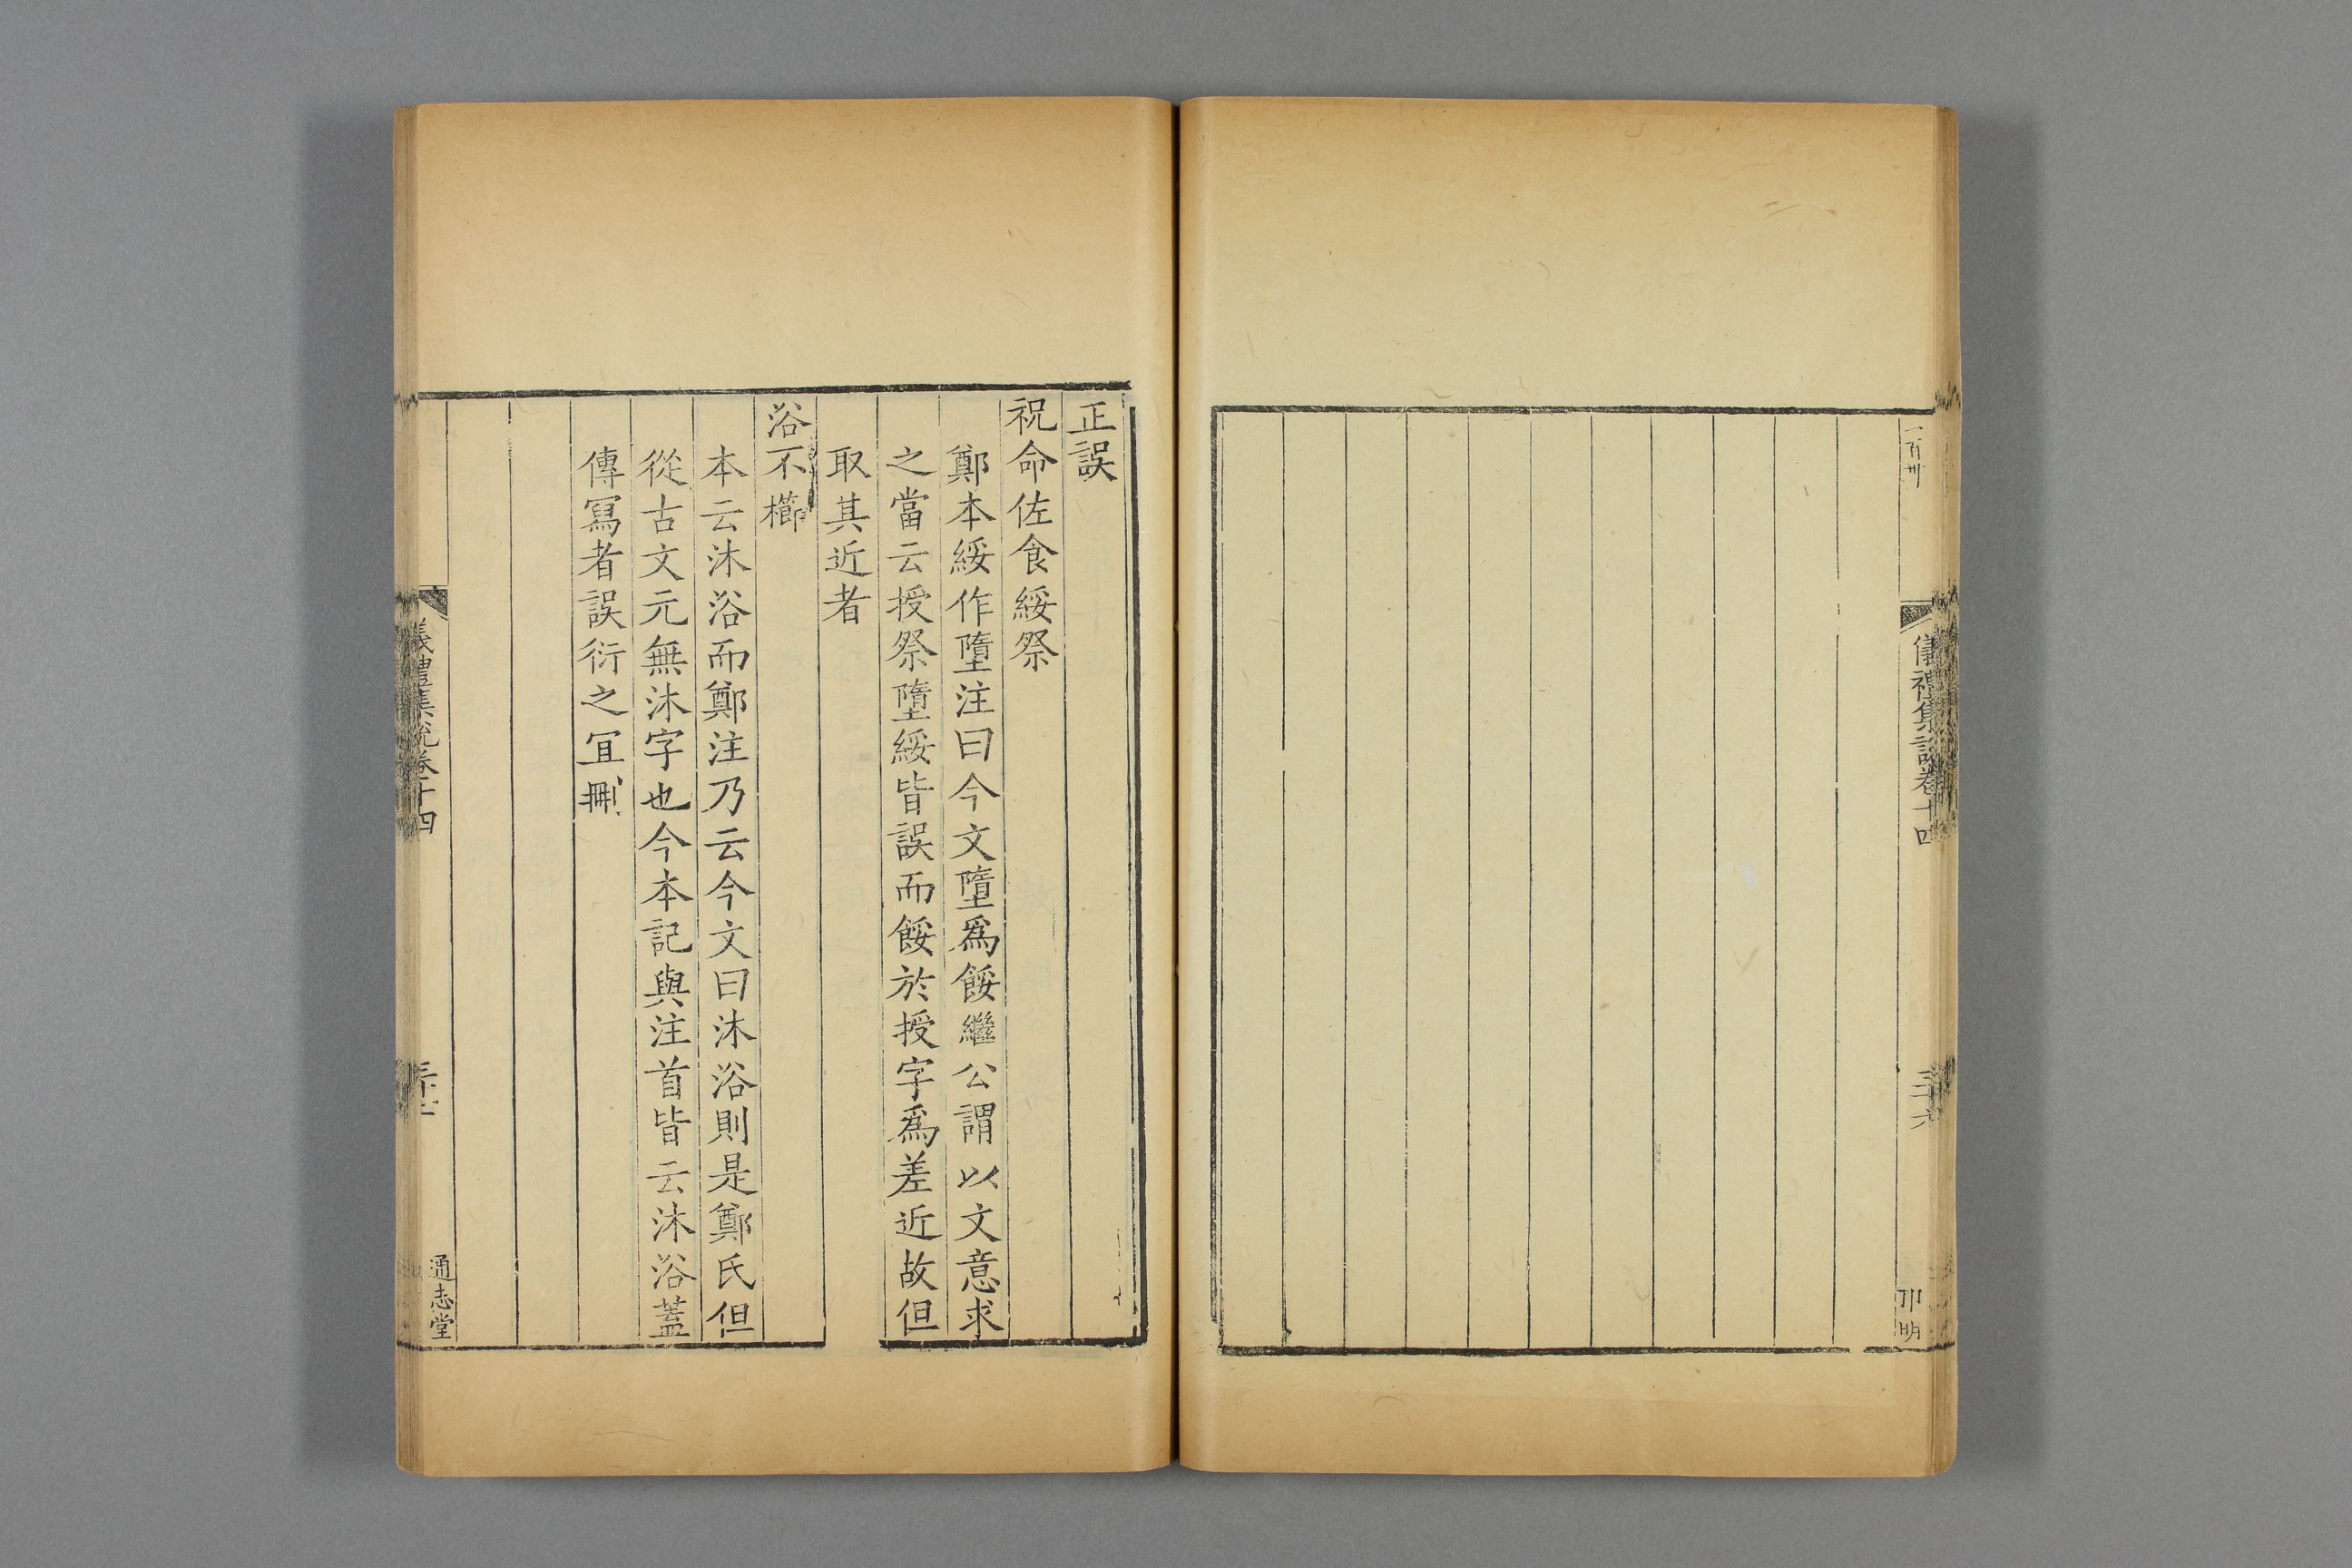 一百卅
儀禮集說卷十四
三十六
卬明
正誤
祝命佐食綏祭
鄭本綏作墮注曰今文墮爲餒繼公謂以文意求
之當云授祭墮綏皆誤而餒於授字爲差近故但
取其近者
浴不櫛
本云沐浴而鄭注乃云今文曰沐浴則是鄭氏但
從古文元無沐字也今本記與注首皆云沐浴蓋
傳寫者誤衍之冝刪
儀禮集說卷十四
通志堂